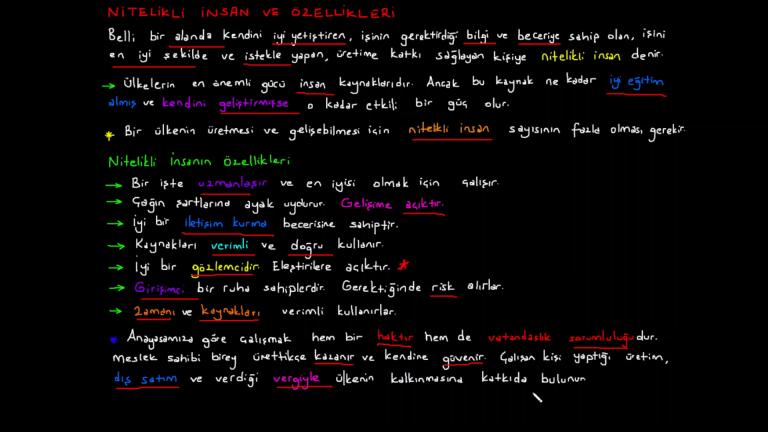 NİTELİKLİ İNSAN VE ÖZELLİKLERİ
Belli bir alanda kendini iyi yetiştiren, işinin gerektirdiği bilgi ve beceriye sahip olan, işini
en iyi şekilde ve istekle yapan, üretime katkı sağlayan kişiye nitelikli insan denir.
→ Ülkelerin en önemli gücü insan kaynaklarıdır. Ancak bu kaynak ne kadar iyi eğitim
almış ve kendini geliştirmişse o kadar etkili bir güç olur.
* Bir ülkenin üretmesi ve gelişebilmesi için nitelikli insan sayısının fazla olması gerekir.
Nitelikli İnsanın Özellikleri
→ Bir işte uzmanlaşır ve en iyisi olmak için çalışır.
→ Çağın şartlarına ayak uydurur. Gelişime açıktır.
→ İyi bir iletişim kurma becerisine sahiptir.
→ Kaynakları verimli ve doğru kullanır.
→ İyi bir gözlemcidir. Eleştirilere açıktır. *
→ Girişimci bir ruha sahiplerdir. Gerektiğinde risk alırlar.
→ Zamanı ve kaynakları verimli kullanırlar.
* Anayasamıza göre çalışmak hem bir haktır hem de vatandaşlık sorumluluğudur.
meslek sahibi birey ürettikçe kazanır ve kendine güvenir. Çalışan kişi yaptığı üretim,
dış satım ve verdiği vergiyle ülkenin kalkınmasına katkıda bulunur